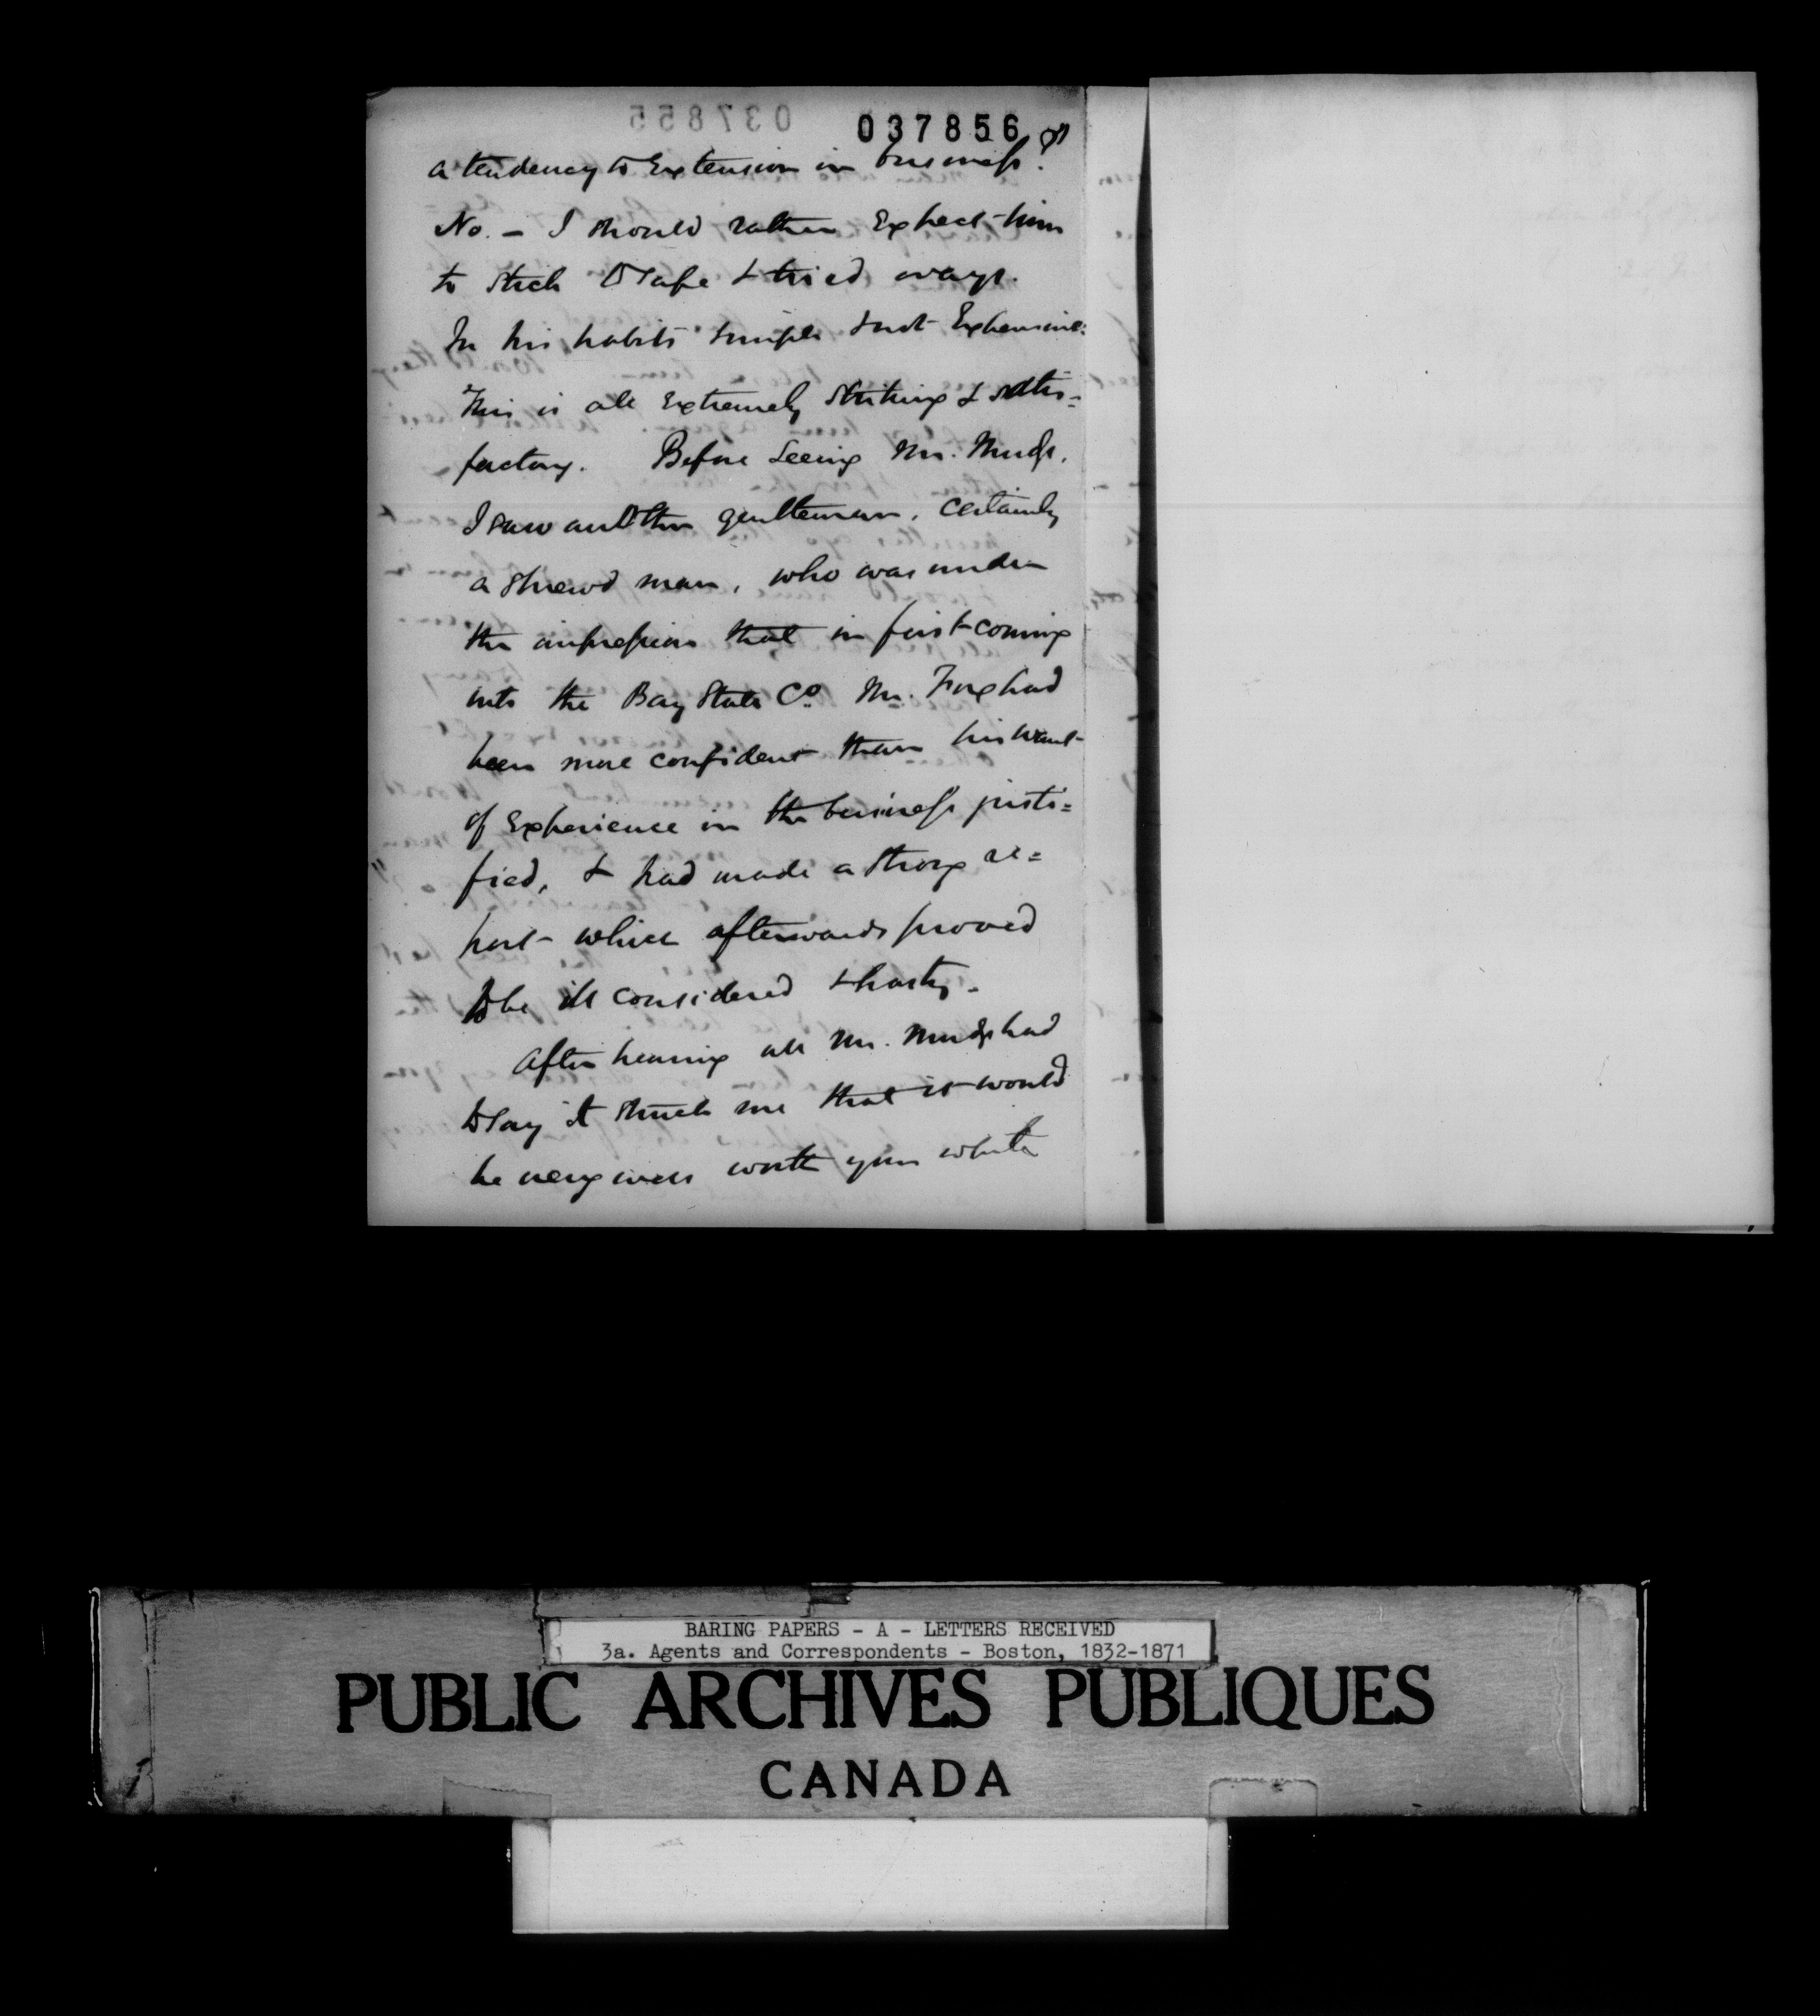 037856
a tendency to Extension in business?"
No. - I should rather Expect him
to stick to safe & tried ways.
In his habits simple & not Expensive.
This is all Extremely striking & satis=
factory. Before seeing Mr. Mudge,
I saw another gentleman, certainly
a shrewd man, who was under
the impression that in first coming
into the Bay State Co. Mr. Fox had
been more confident than his want
of Experience in the business justi=
fied, & had made a strong re=
port which afterwards proved
to be ill considered & hasty.
After hearing all Mr. Mudge had
to say it struck me that it would
be very well worth your while
BARING PAPERS - A - LETTERS RECEIVED
3a. Agents and Correspondents - Boston, 1832-1871
PUBLIC ARCHIVES PUBLIQUES
CANADA